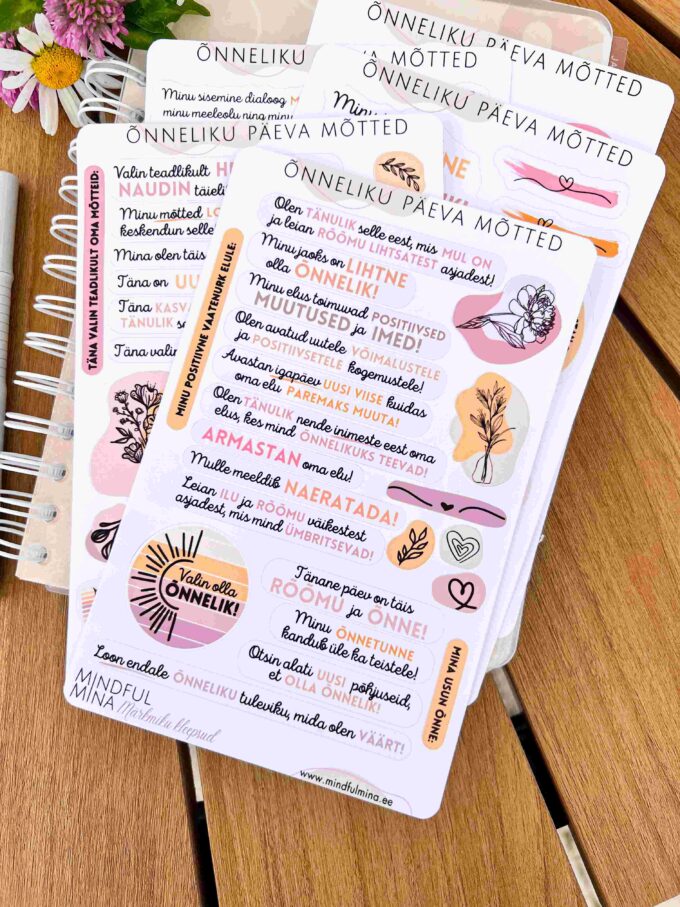 ÕNNELIKU PÄEVA MÕTTED
ÕNNELIKU PÄEVA MÕTTED
Minu sisemine dialoog
minu meeleolu ning minu
ÕNNELIKU PÄEVA MÕTTED
Minu
ÕNNELIKU PÄEVA MÕTTED
TÄNA VALIN TEADLIKULT OMA MÕTTEID:
Valin teadlikult
NAUDIN
Minu mõtted
keskendun selle
Mina olen täis
Täna on
Täna
TÄNULIK
Täna valin
ÕNNELIKU PÄEVA MÕTTED
MINU POSITIIVNE VAATENURK ELULE:
Olen TÄNULIK selle eest, mis MUL ON
ja leian RÕÕMU LIHTSATEST asjadest!
Minu jaoks on LIHTNE
olla ÕNNELIK!
Minu elus toimuvad POSITIIVSED
MUUTUSED ja IMED!
Olen avatud uutele VÕIMALUSTELE
ja POSITIIVSETELE kogemustele!
Avastan igapäev UUSI VIISE kuidas
oma elu PAREMAKS MUUTA!
Olen TÄNULIK nende inimeste eest oma
elus, kes mind ÕNNELIKUKS TEEVAD!
ARMASTAN oma elu!
Mulle meeldib NAERATADA!
Leian ILU ja RÕÕMU väikestest
asjadest, mis mind ÜMBRITSEVAD!
Valin olla
ÕNNELIK!
Tänane päev on täis
RÕÕMU ja ÕNNE!
Minu ÕNNETUNNE
kandub üle ka teistele!
Otsin alati UUSI põhjuseid,
et OLLA ÕNNELIK!
MINA USUN ÕNNE:
Loon endale ÕNNELIKU tuleviku, mida olen VÄÄRT!
MINDFUL
MINA / Märkmiku kleepsud
www.mindfulmina.ee